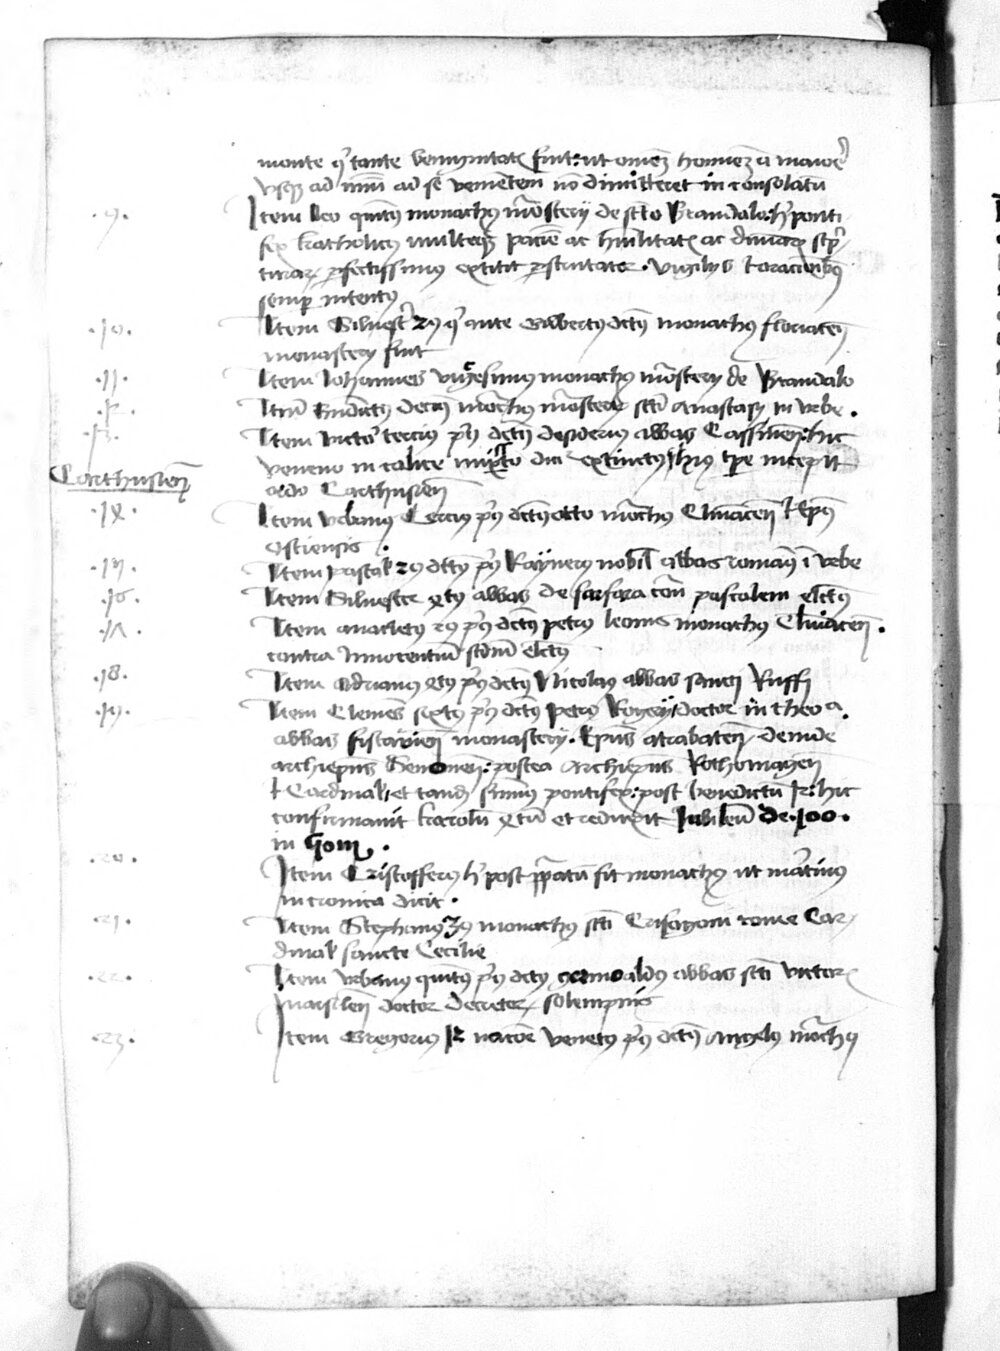 monte qi tante benignitatis fuit: ut omnem hominem a maiore
usque ad minimum ad se venientem non dimitteret in consolatum
.9. Item Leo quintus monachus monasterii de sancto Brandalo: hic ponti
fex katholicus multeque pacie ac humilitatis ac divinarum scrip
turarum perfectissimus extitit perscrutator. vigiliis et orationibus
semper intentus
.10. Item Silvester 2us qui ante Gilbertus dictus monachus floriacen
monasterii fuit
.11. Item Iohannes vigesimus monachus monasterii de Brandalo
.12. Item Benedictus decimus monachus monasterii sancti Anastasii in urbe.
.13. Item victor tercius prius dictus desiderius abbas Cassinen: hic
veneno in calice mixto dicitur extinctus huius tempore incepit
Carthusien
ordo Carthusien
.14. Item Urbanus tercius prius dictus otto monachus Cluniacen et Episcopus
Ostiensis.
.15. Item pascal 2us dictus prius Raynerus nobilis abbas romanus in urbe
.16. Item Silvester 4tus abbas de farfara contra pascalem electus
.17. Item anacletus 2us prius dictus petrus leonis monachus Cluniacen.
contra Innocentium secundum electus
.18. Item Adrianus 4tus prius dictus Nicolaus abbas sancti Ruffi
.19. Item Clemens sextus prius dictus petrus Rogerii, doctor in theo a.
abbas fiscanen monasterii. Episcopus atrabaten, deinde
archiepiscopus Senonen: postea Archiepiscopus Rothomagen
et Cardinalis, et tandem summus pontifex: post benedictum 12: hic
confirmavit karolum 4tum et reduxit Iubileum de .100.
in 50m.
.20. Item Cristofferus hic post papatum fit monachus ut martinus
in cronica dicit.
.21. Item Stephanus 3us monachus sancti Crisogoni rome Car
dinalis sancte Cecilie
.22. Item Urbanus quintus prius dictus grimoaldus abbas sancti victoris
marsilien doctor decretorum solempnis
.23. Item Gregorius 12 natione venetus prius dictus Angelus monachus